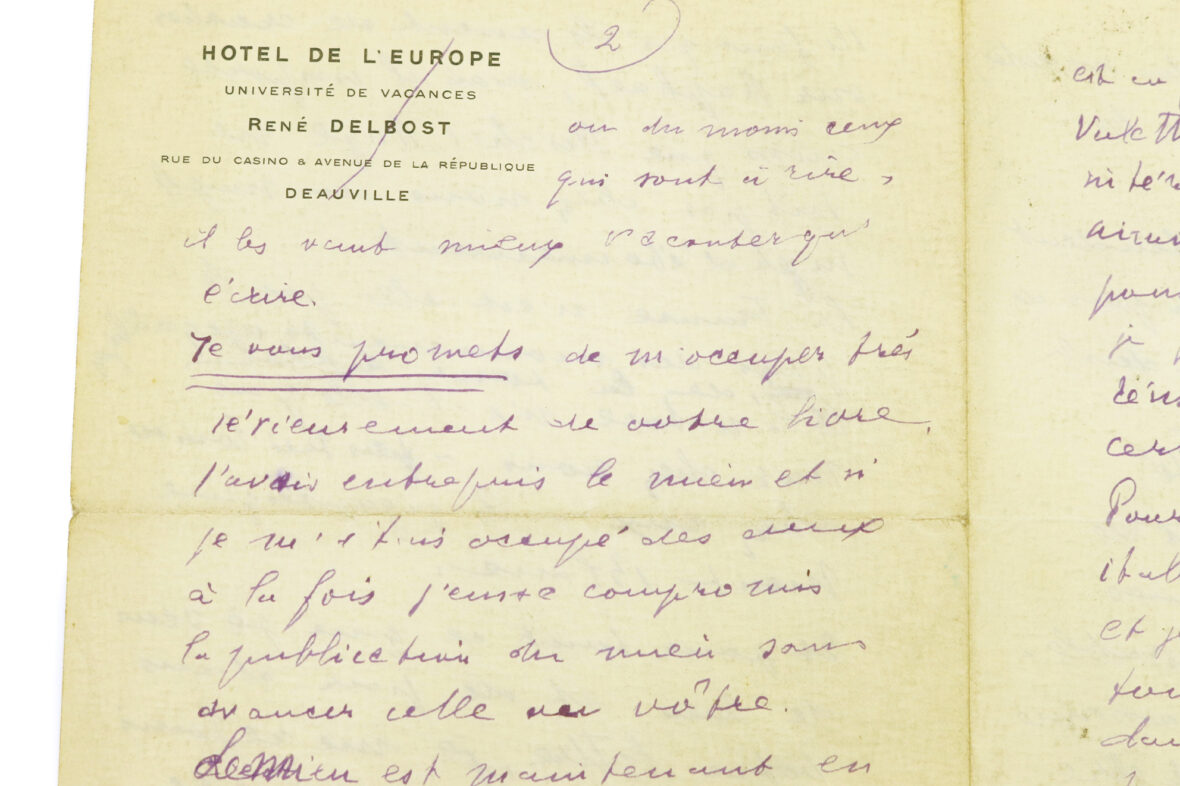 HOTEL DE L'EUROPE
UNIVERSITÉ DE VACANCES
RENÉ DELBOST
RUE DU CASINO & AVENUE DE LA RÉPUBLIQUE
DEAUVILLE
2
ou du moins ceux
qui sont à rire,
il les vaut mieux raconter qu'
écrire.
Je vous promets de m'occuper très
sérieusement de votre livre.
J'avais entrepris le mien et si
je m'étais occupé des deux
à la fois j'eusse compromis
la publication du mien sans
avancer celle du vôtre.
Le mien est maintenant en
est en
ni
pour
je
Pour
et je